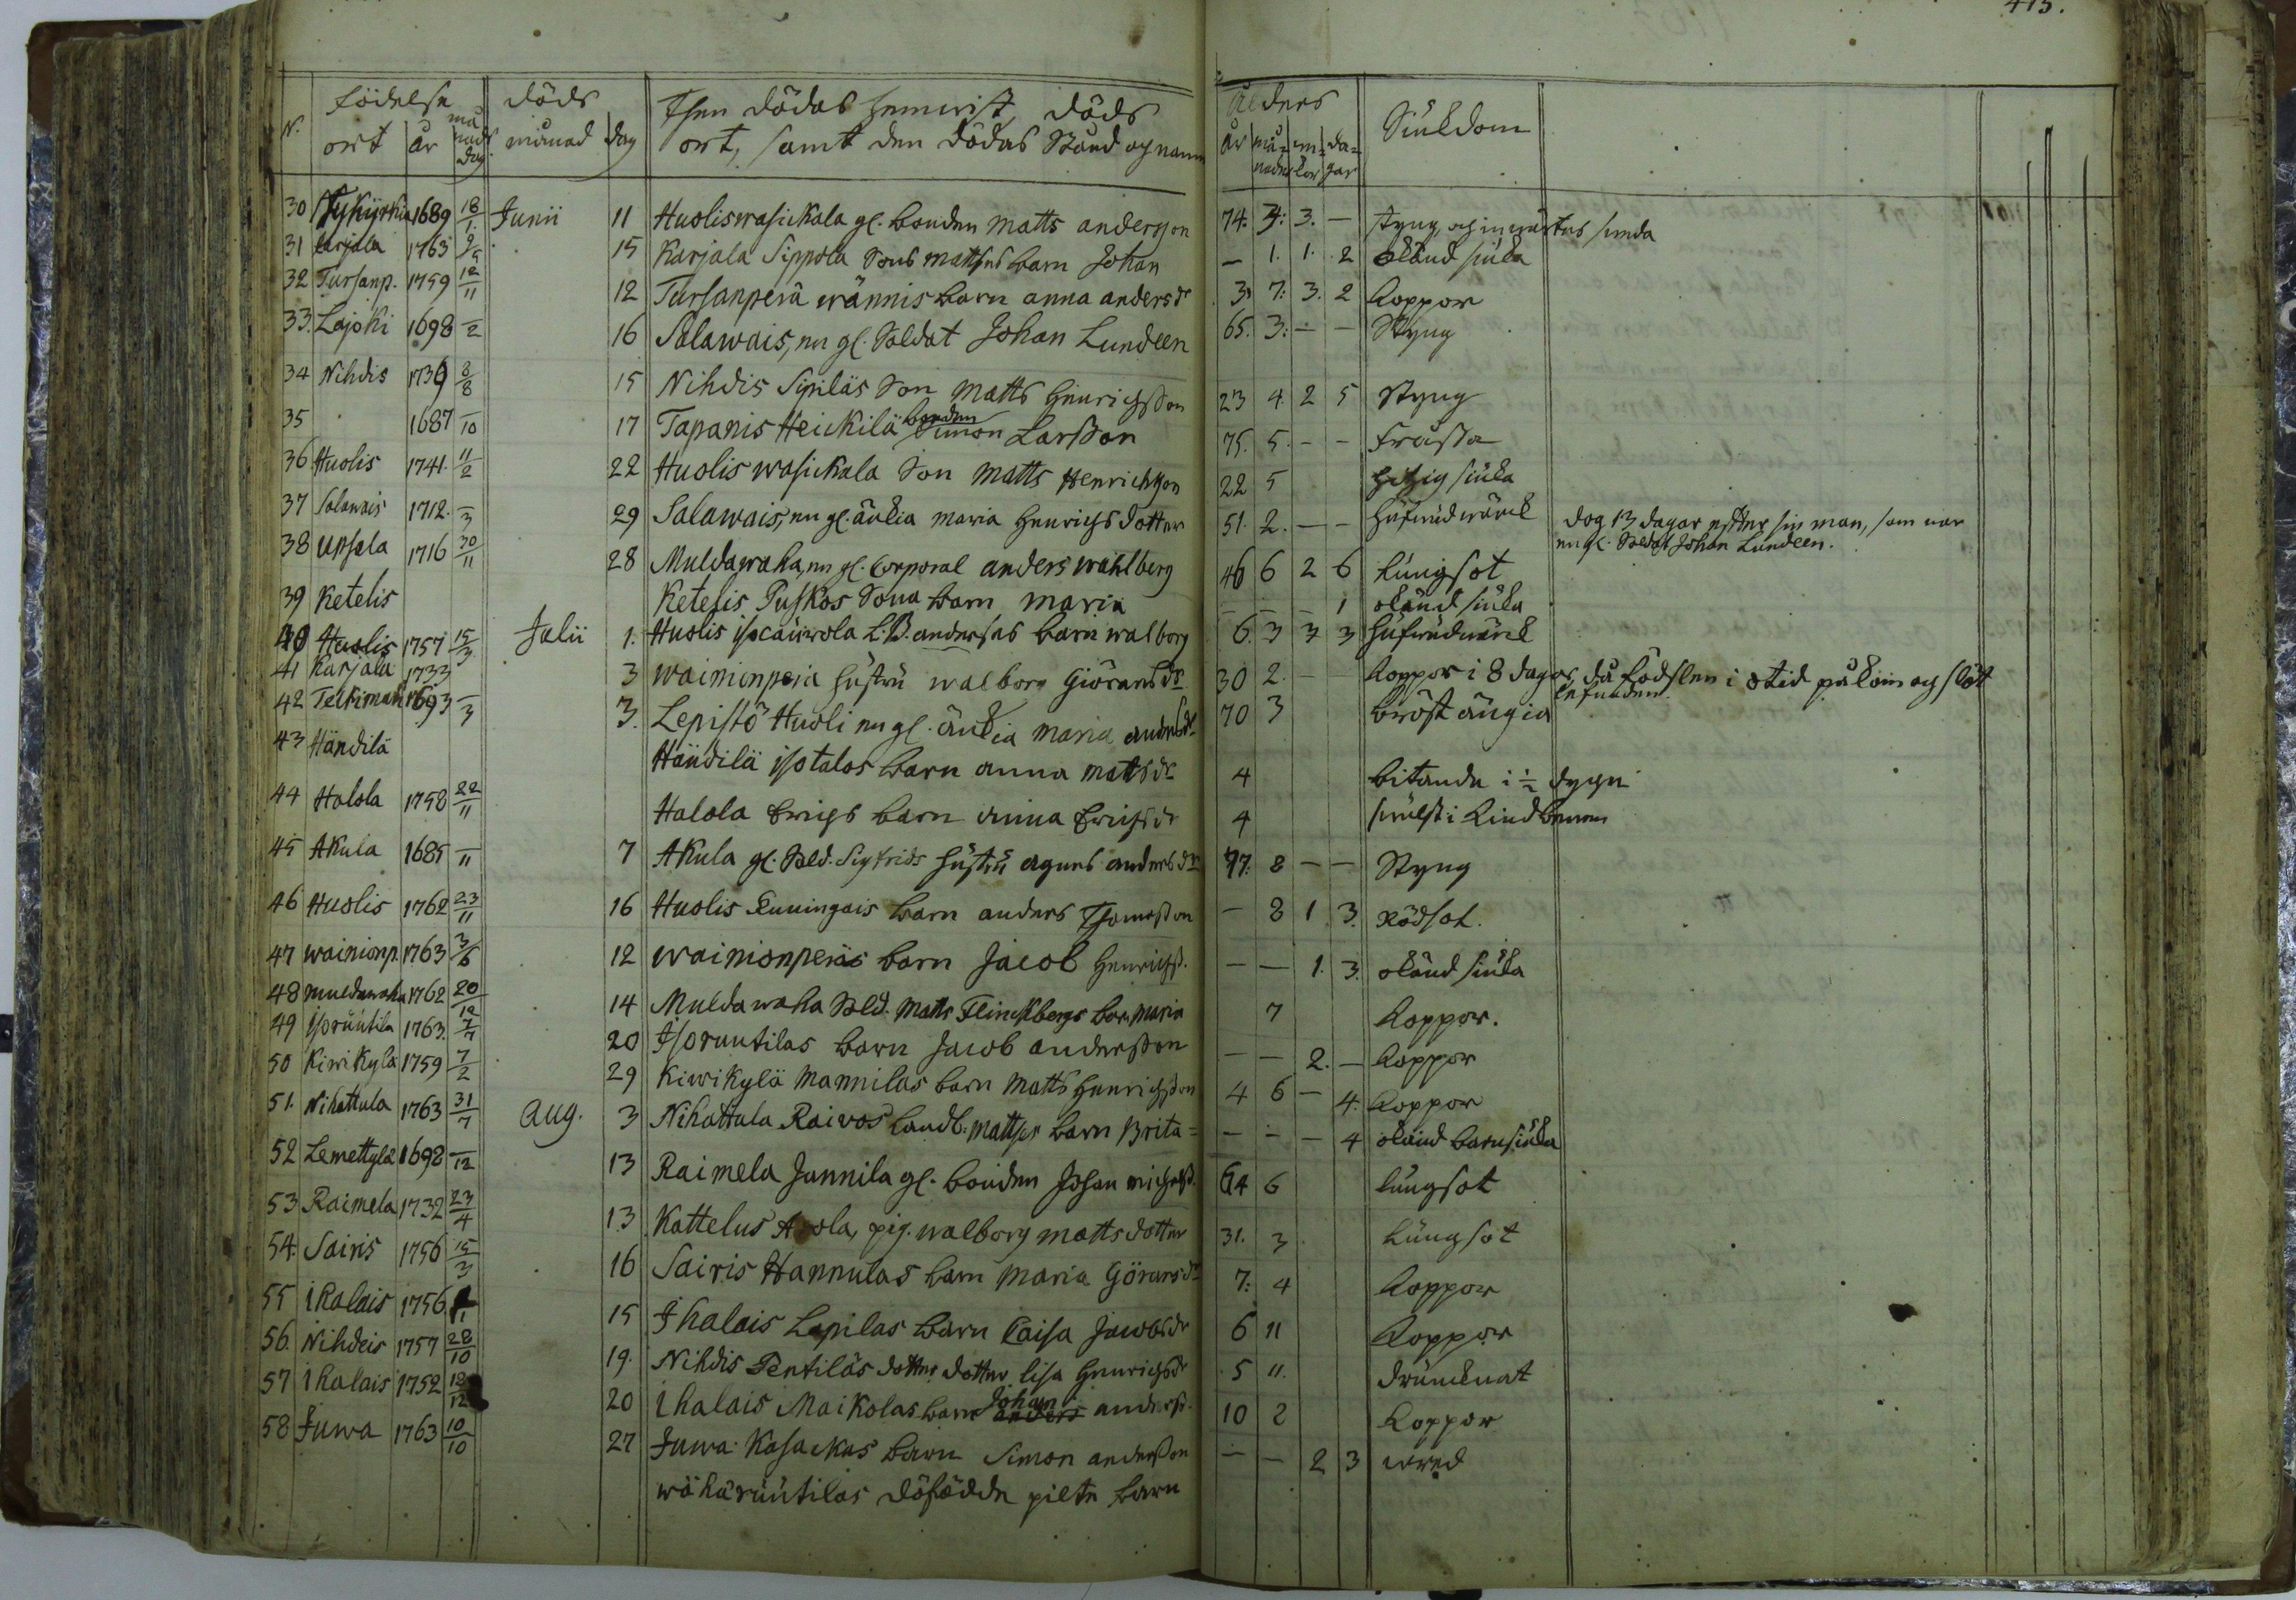 415.
N. födelse ort år månads dag döds månad dag Then dödas hemvist döds ort, samt den dödas Stånd och namn Ålders år månader wekor dagar Siukdom
30 Nykyrkia 1689 18/1 Junii 11 Huolis wasickala gl. bonden Matts andersson 74. 4: 3. — styng och invärtes
31 Carjala 1763 9/5 15 Karjala Sippola Sons Mattses barn Johan — 1. 1. 2 okänd siuka
32 Tursanp. 1759 12/11 12 Tursanperä wännis barn anna andersdr 3. 7: 3. 2 koppor
33. Lajoki 1698 —/2 16 Salawais, nu gl. Soldat Johan Lundeen 65. 3: — — Styng
34 Nihdis 1739 8/8 15 Nihdis Sipiläs Son Matts Henrichsson 23 4 2 5 Styng
35 1687 —/10 17 Tapanis Heickilä bonden Simon Larsson 75. 5. — — fråssa
36 Huolis 1741. 11/2 22 Huolis wasickala Son Matts Henrichsson 22 5 hitzig siuka
37 Salawais 1712. —/3 29 Salawais, nu gl. änkia maria Henrichsdotter 51. 2. — — hufwudwärck dog 13 dagar efter sin man, som war
nu gl. Soldat Johan Lundeen.
38 Upsala 1716 30/11 28 Muldawaha, nu gl. Corporal anders wahlberg 46 6 2 6 lungsot
39 Ketelis Ketelis Puskos Sona barn maria — — — 1 okänd siuka
40 Huolis 1757 15/3 Julii 1. Huolis isocaurola L:B. anderses barn walborg 6. 3 3 3 hufwudwärck
41 Karjala 1733 3 wainionpeia hustru walborg Giöransdr 30 2. — — koppor i 8 dagar, då födslen i otid påkom och slöt
42 Telkimäk 1693 —/3 3. Lepistö Huoli nu gl. änkia maria andersdr 70 3 bröst ängia
43 Händilä Händilä isotalos barn anna Mattsdr 4 bitande i ½ dygn
44 Halola 1758 22/11 Halola Erichs barn anna Erichsdr 4
45 Akula 1685 —/11 7 Akula gl. Sold. Sigfrids hustru agnes andersdr 77: 8 — — Styng
46 Huolis 1762 23/11 16 Huolis Kuningais barn anders Thomasson — 8 1 3. Rödsot.
47 wainionp. 1763 3/6 12 wainionperäs barn Jacob Henrichss. — — 1. 3. okänd siuka
48 muldawaha 1762 20/12 14 Muldawaha Sold. Matts Flinckbergs barn Maria 7 koppor.
49 isoruutila 1763. 7/7 20 Isoruutilas barn Jacob andersson — — 2. — koppor
50 Kiwikylä 1759 7/2 29 Kiwikylä Mannilas barn Matts Henrichsson 4 6 — 4. koppor
51. Nihattula 1763 31/7 aug. 3 Nihattula Raivos landb. mattses barn Brita — — — 4 okänd barnsiuka
52 Lemettylä 1698 —/12 13 Raimela Jannila gl. bonden Johan michelss. 64 6 lungsot
53 Raimela 1732 23/4 13 Kattelus pig. walborg mattsdotter 31. 3 lungsot
54. Sairis 1756 15/3 16 Sairis Hannulas barn maria Göransdr 7: 4 koppor
55 ihalais 1756 15 Ihalais Lepilas barn Caisa Jacobsdr 6 11 koppor
56. Nihdeis 1757 28/10 19. Nihdis Pentiläs dotter dotter lisa Henrichsdr 5 11. drunknat
57 ihalais 1752 18/12 20 ihalais Maikolas barn anders Johan anderss. 10 2 koppor
58 Juwa 1763 10/10 27 Juwa Kasackas barn Simon andersson — — 2 3 wred
wähäruutilas döfödde pilte barn